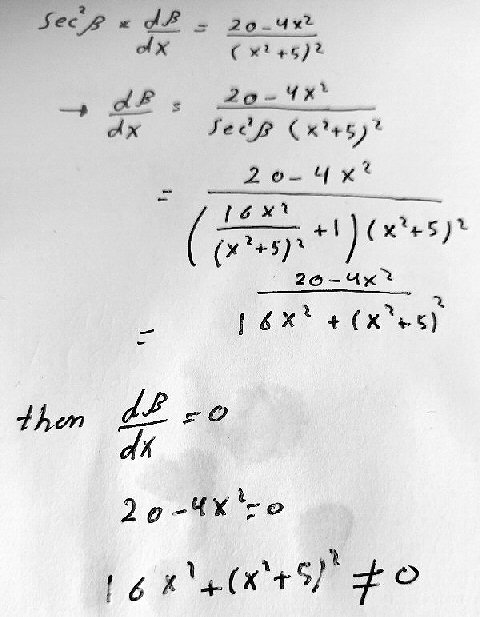 sec²β * dβ/dx = 20-4x²/(x²+5)²
→ dβ/dx = 20-4x²/sec²β (x²+5)²
= 20-4x²/(16x²/(x²+5)² +1)(x²+5)²
= 20-4x²/16x² + (x²+5)²
then dβ/dx = 0
20-4x²=0
16x²+(x²+5)² ≠ 0